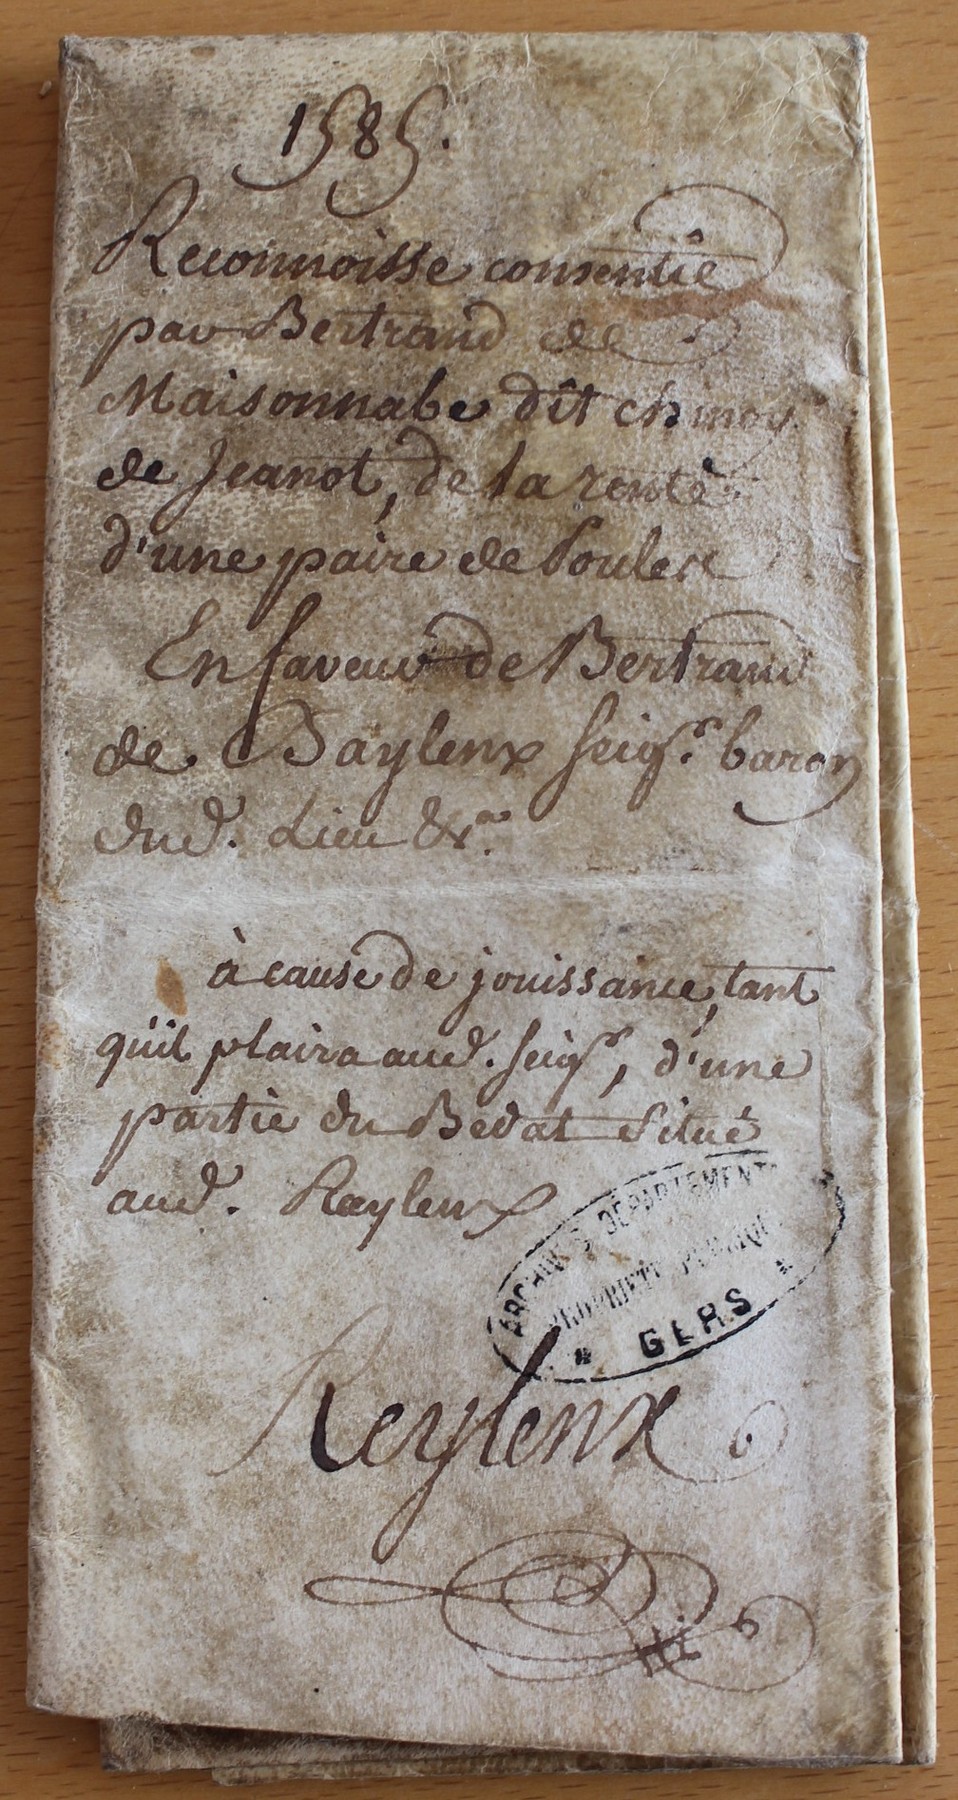 1585.
Reconnoisse consentie
par Bertrand de
Maisonnabe dît
de Jeanot, de la rente
d'une paire de Poules
En faveur de Bertrand
de Baylenx seigr. baron
dud. Lieu &a.
à cause de jouissance, tant
qu'il plaira aud. seigr, d'une
partie du Bedat situé
aud. Baylenx
ARCHIVES DÉPARTEMENT
PROPRIÉTÉ PUBLIQUE
* GERS *
Reylenx 6